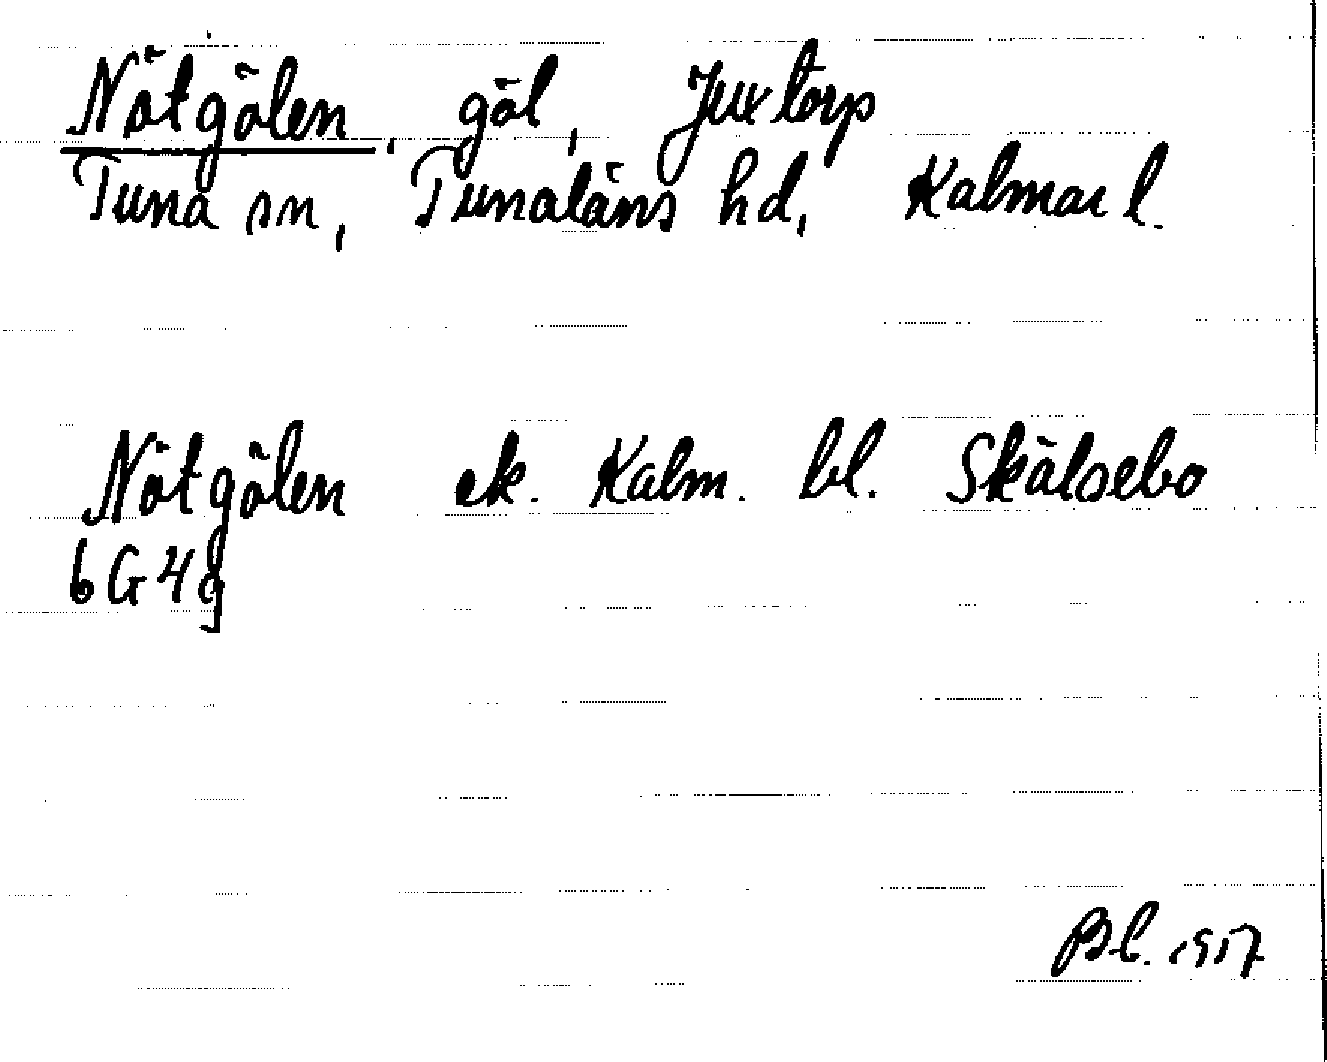 Nötgölen, göl, Juxtorp
Tuna sn, Tunaläns hd, Kalmar l.
Nötgölen ek. Kalm. bl. Skälsebo
6G4g
Bl. 1957